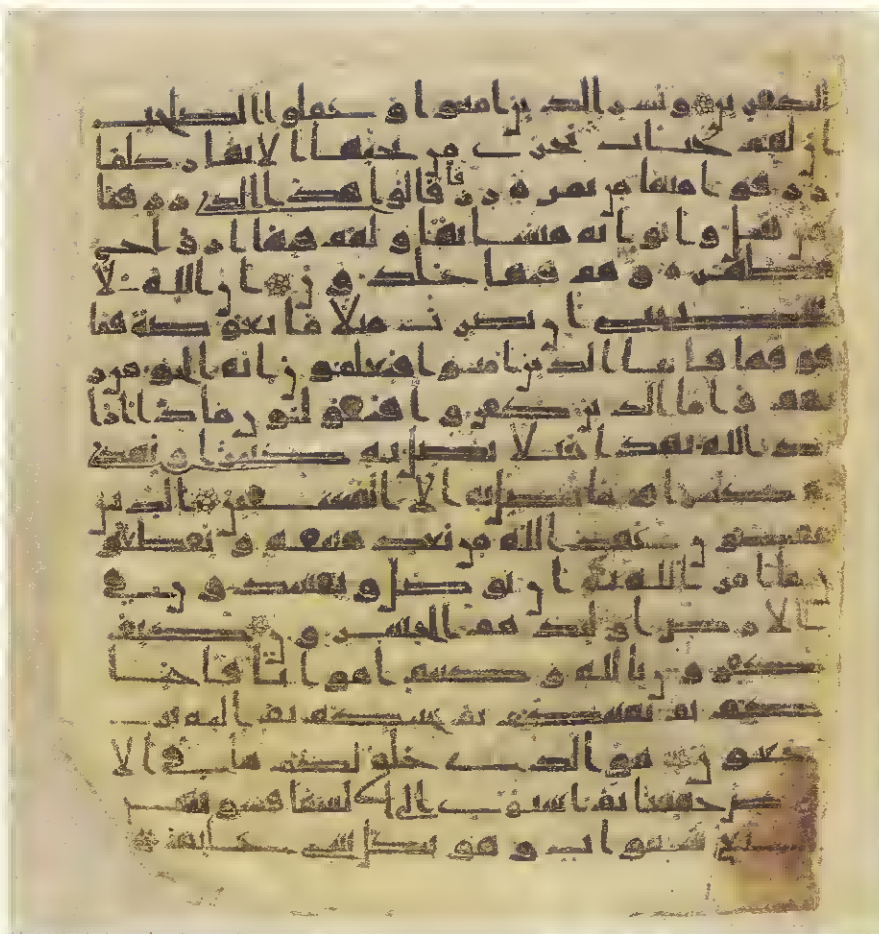 الكفرين وبشر الذين امنوا و عملوا الصلحت
ان لهم جنات تجري من تحتها الانهار كلما
رزقوا منها من ثمرة رزقا قالوا هذا الذي رزقنا
من قبل واتوا به متشابها ولهم فيها ازوج
مطهرة وهم فيها خلدون ان الله لا
يستحيي ان يضرب مثلا ما بعوضة فما
فوقها فاما الذين امنوا فيعلمون انه الحق من ر
بهم واما الذين كفروا فيقولون ماذا ا
راد الله بهذا مثلا يضل به كثيرا ويهدي
به كثيرا وما يضل به الا الفسقين الذين
ينقضون عهد الله من بعد ميثقه ويقطعو
ن ما امر الله به ان يوصل ويفسدون في
الارض اولئك هم الخسرون كيف
تكفرون بالله وكنتم اموتا فاحيا
كم ثم يميتكم ثم يحييكم ثم اليه تر
جعون هو الذي خلق لكم ما في الا
رض جميعا ثم استوى الى السما فسويهن
سبع سموات وهو بكل شي عليم